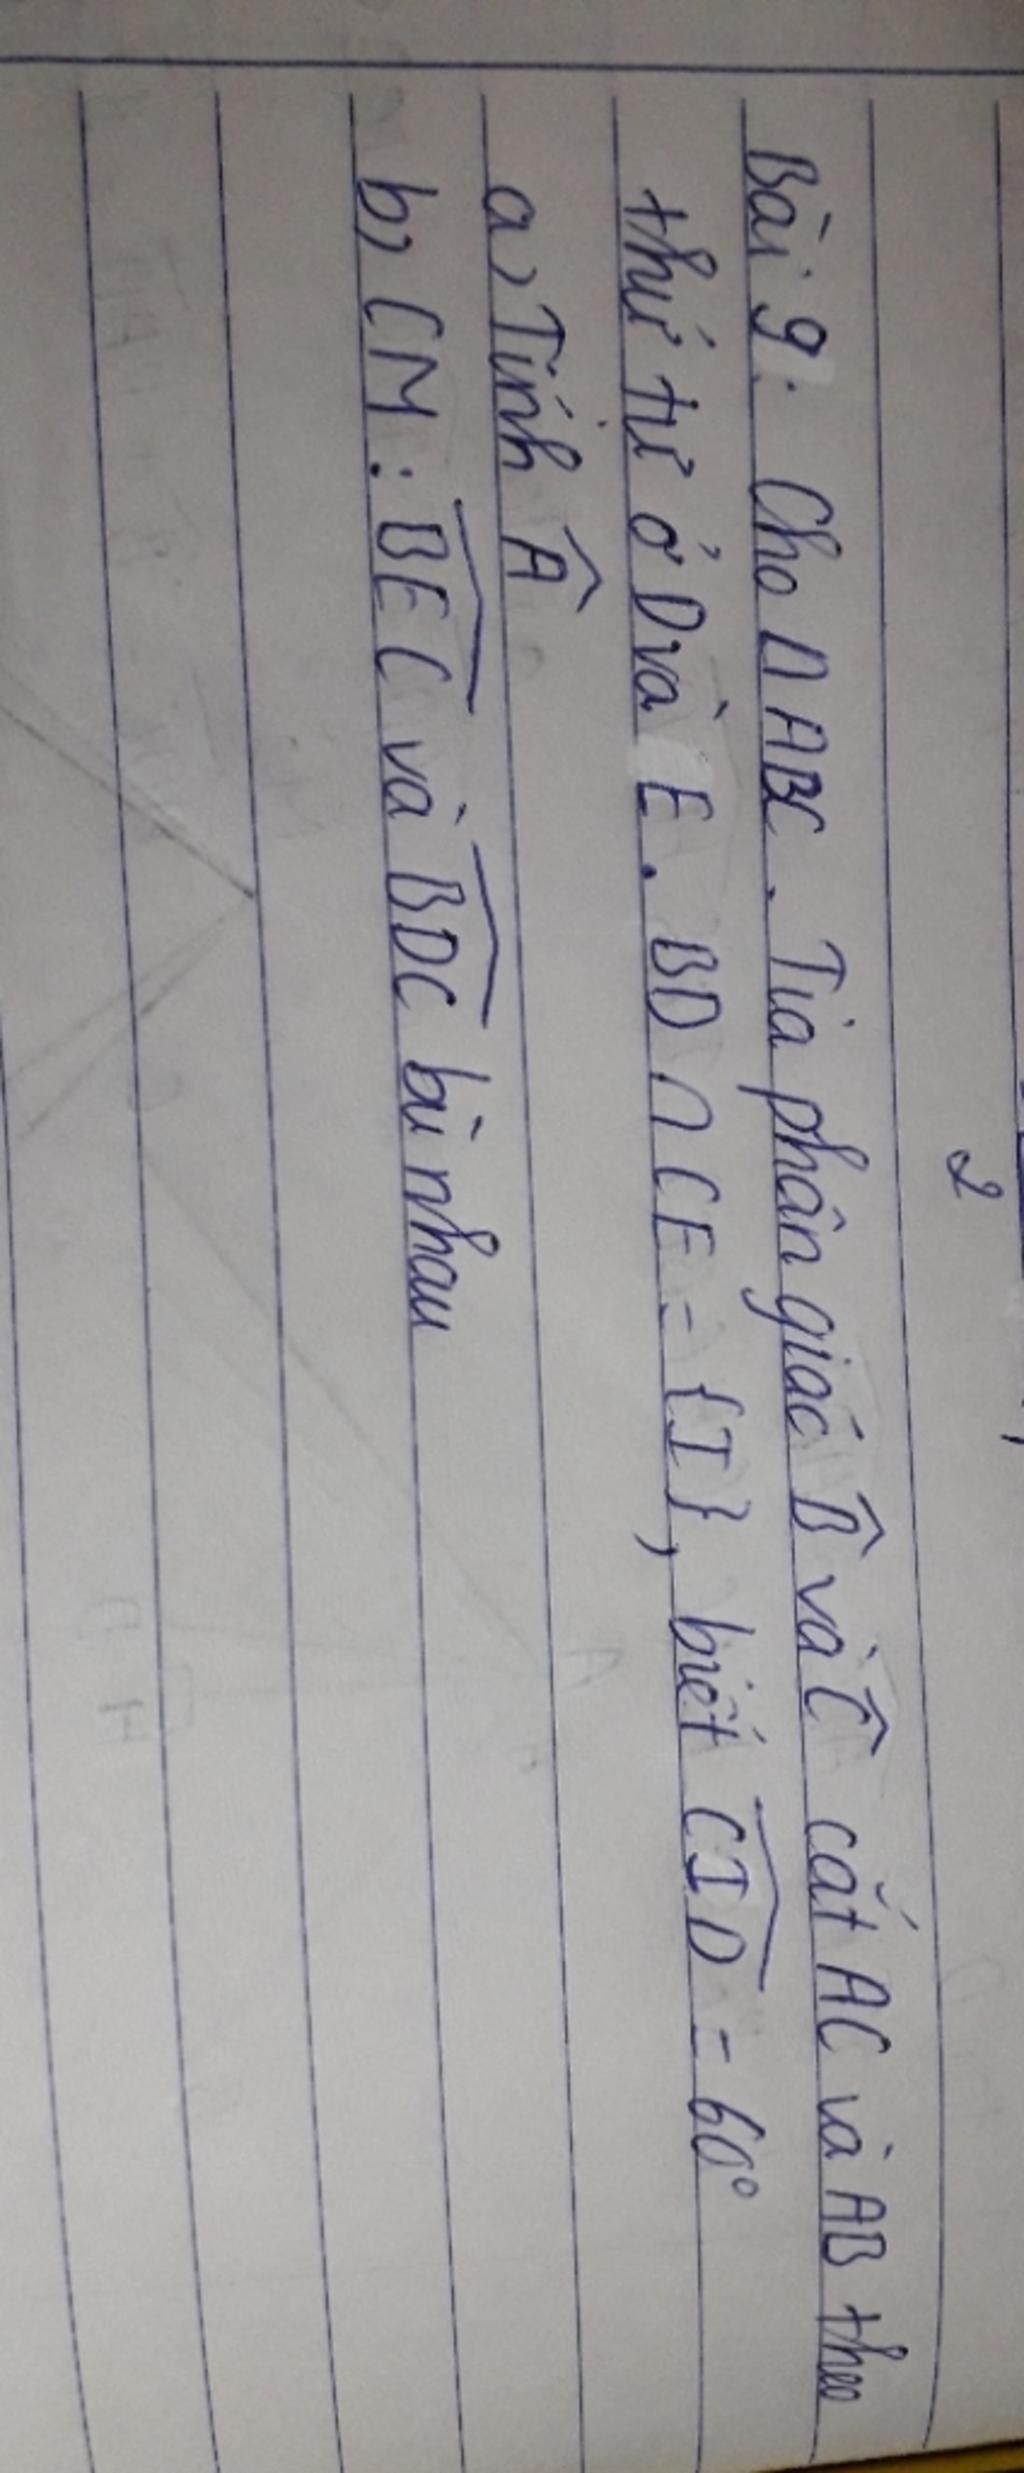 2
Bài 9: Cho Δ ABC. Tia phân giác B̂ và Ĉ cắt AC và AB theo
thứ tự ở D và E. BD ∩ CE = {I}, biết \widehat{CID} = 60°
a, Tính Â
b, CM: \widehat{BEC} và \widehat{BDC} bù nhau